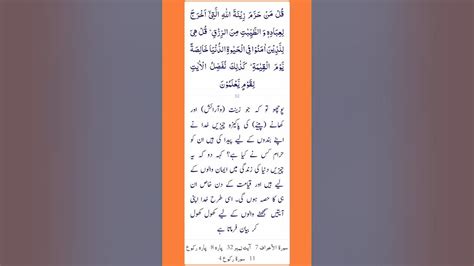 قُلْ مَنْ حَرَّمَ زِينَةَ اللّٰهِ الَّتِيْٓ اَخْرَجَ
لِعِبَادِهٖ وَالطَّيِّبٰتِ مِنَ الرِّزْقِ ؕ قُلْ هِيَ
لِلَّذِيْنَ اٰمَنُوْا فِي الْحَيٰوةِ الدُّنْيَا خَالِصَةً
يَّوْمَ الْقِيٰمَةِ ؕ كَذٰلِكَ نُفَصِّلُ الْاٰيٰتِ
لِقَوْمٍ يَّعْلَمُوْنَ
پوچھو تو کہ جو زینت (وآرائش) اور
کھانے (پینے) کی پاکیزہ چیزیں خدا نے
اپنے بندوں کے لیے پیدا کی ہیں ان کو
حرام کس نے کیا ہے؟ کہہ دو کہ یہ
چیزیں دنیا کی زندگی میں ایمان والوں کے
لیے ہیں اور قیامت کے دن خاص ان
ہی کا حصہ ہوں گی۔ اسی طرح خدا اپنی
آیتیں سمجھنے والوں کے لیے کھول کھول
کر بیان فرماتا ہے
سورة الأعراف 7 آیت نمبر 32 پارہ 8 پارہ رکوع
11 سورة رکوع 4